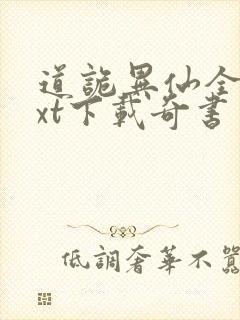 道詭異仙全
xt下載奇書
低調奢華不囂